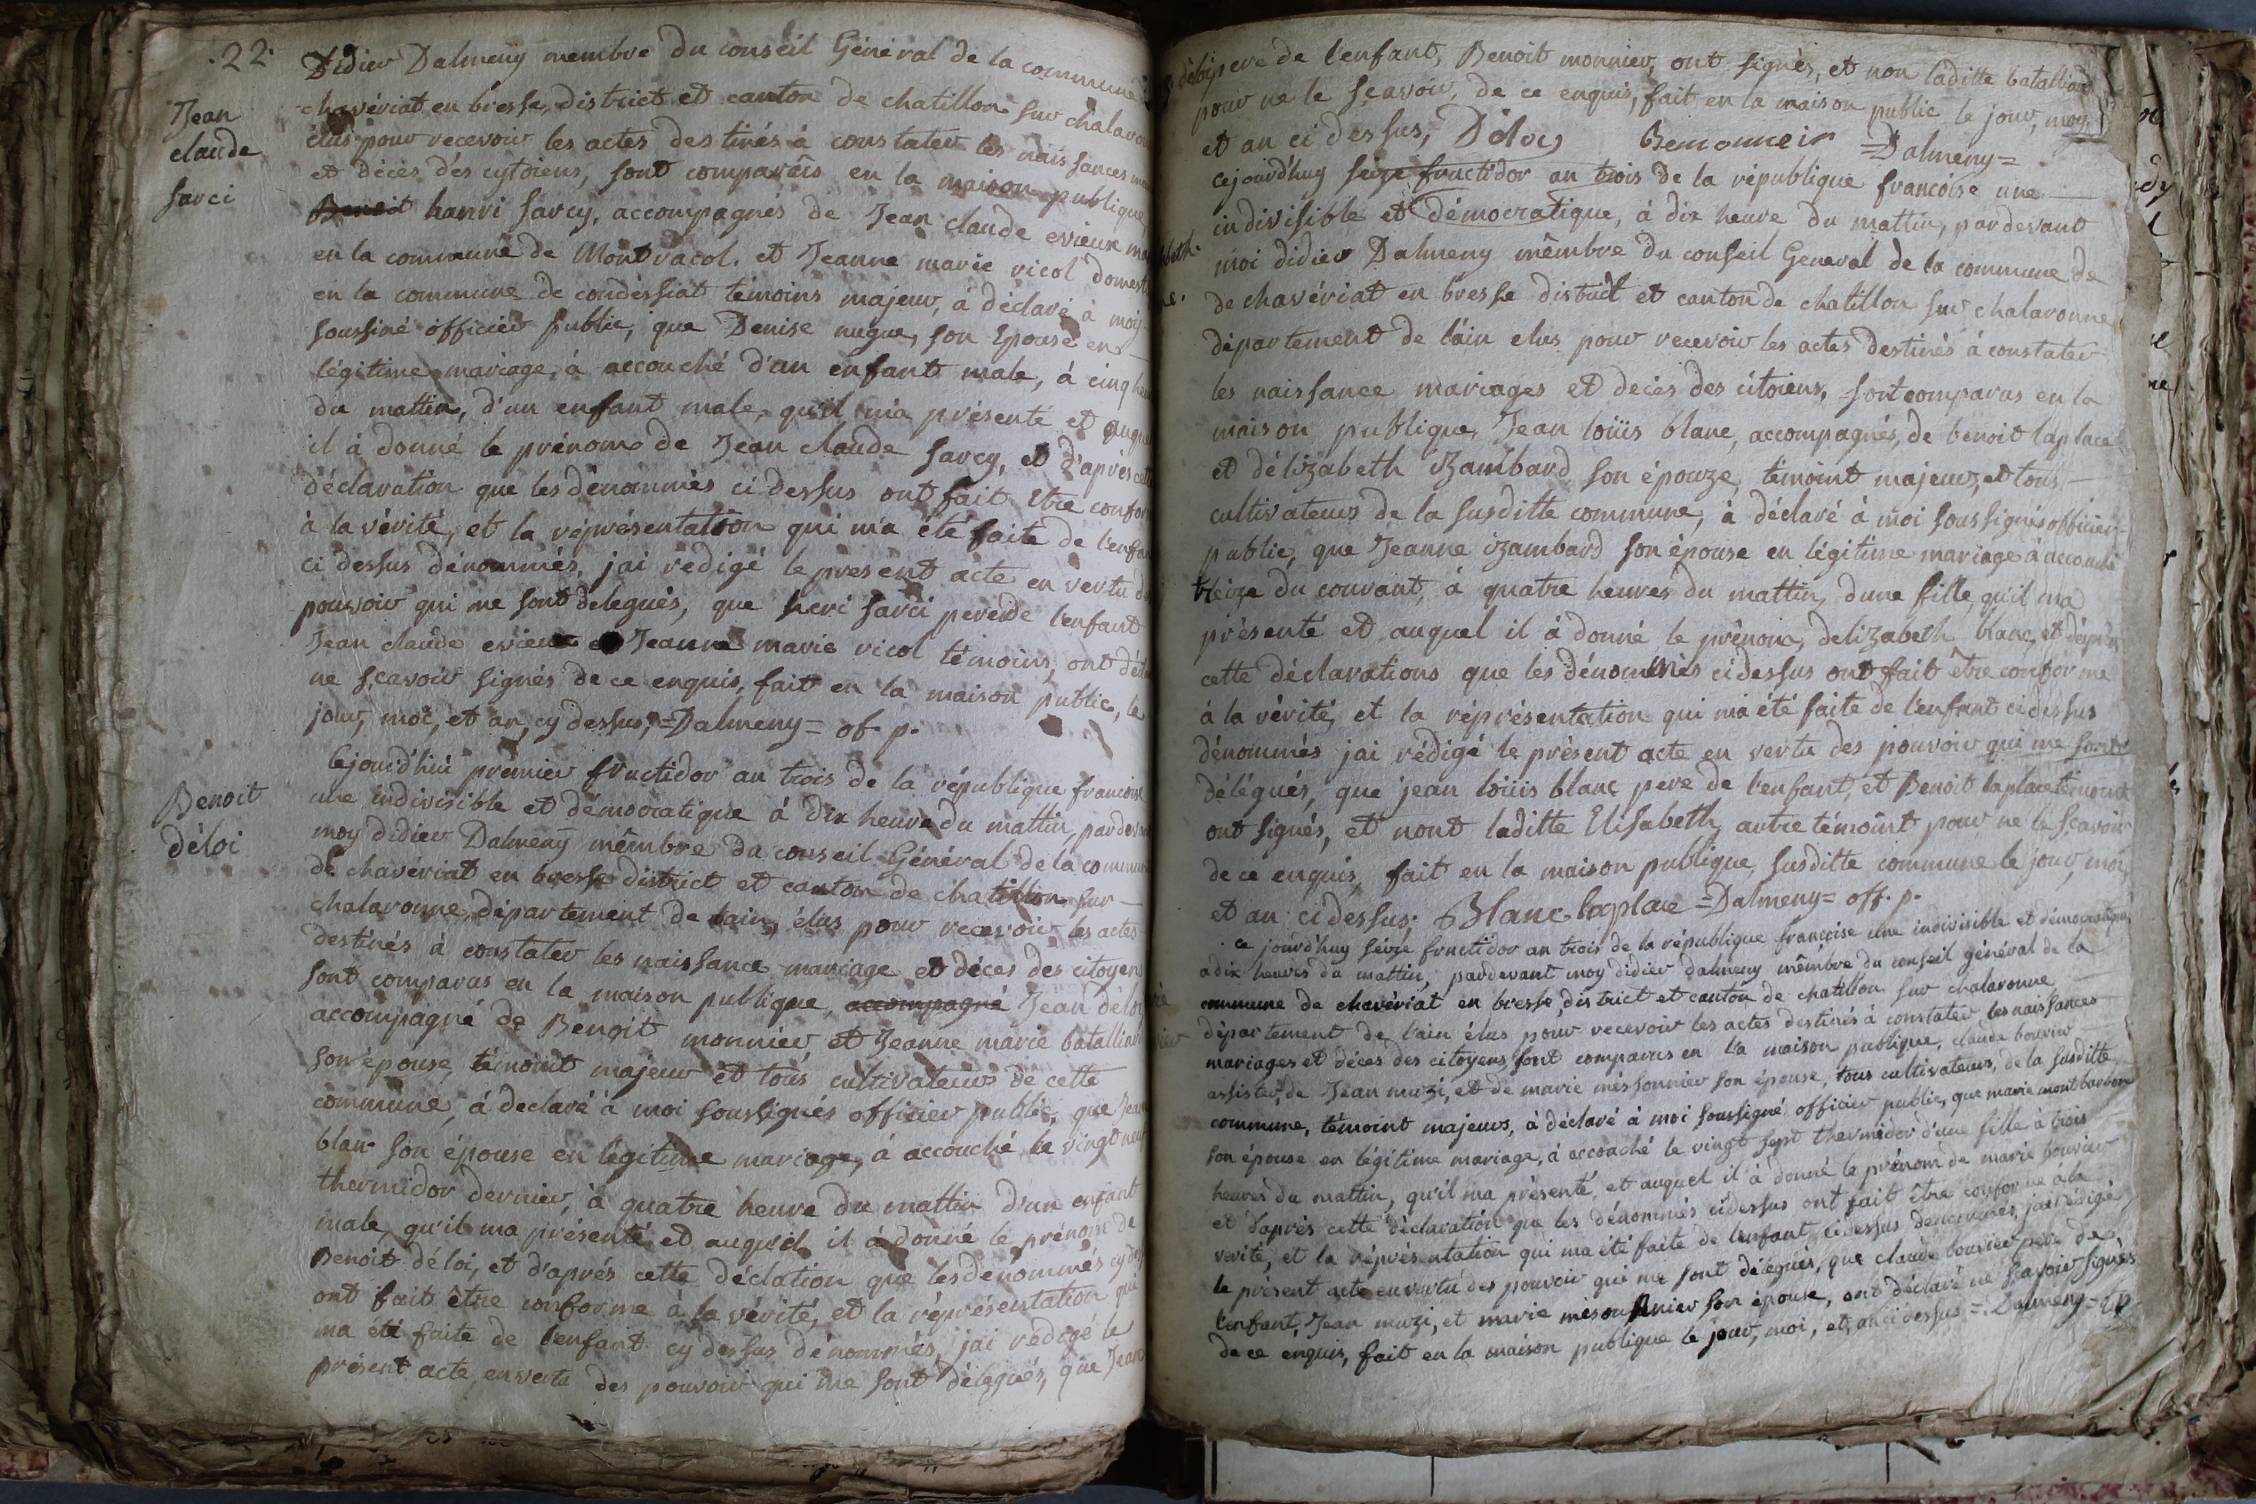 .22.
Jean
claude
sarci
Didier Dalmeny membre du conseil Général de la commune
chavériat en bresse, district et canton de chatillon sur chalaron
élus pour recevoir les actes destinés à constater les naissances
et décès des cytoiens, sont comparûs en la maison publique,
Benoit hanri sarcy, accompagnés de Jean claude evieux
en la commune de Montracol. et Jeanne marie vicol domest
en la commune de condessiat témoins majeur, à déclaré à moy
soussiné officier public, que Denise nugue, son Epouse en
légitime mariage, à accouché d'un enfant male, à cinq heu
du mattin, d'un enfant male, qu'il m'a présenté et auque
il à donné le prénom de Jean claude sarcy, et d'après cette
déclaration que les dénommés ci dessus ont fait etre confor
à la vérité, et la réprésentation qui m'a été faite de l'enfan
ci dessus dénommés, jai redigé le present acte en vertu d
pouvoir qui me sont delegués, que heri sarci pere de l'enfant
Jean claude evieux et Jeanne marie vicol témoins, ont décl
ne sçavoir signés de ce enquis, fait en la maison public, le
jour, moi, et an, cy dessus, =Dalmeny= of. p.
Benoit
déloi
Cejourd'hui prémier fructidor an trois de la république francoise
une indivisible et démocratique à dix heure du mattin, pardev
moy didier Dalmeny mêmbre du conseil Général de la commun
de chavériat en bresse district et canton de chatillon sur
chalaronne, département de lain, élus pour recevoir les actes
destinés à constater les naissance mariage et décès des citoyens
sont comparus en la maison publique, accompagné Jean déloi
accompagné de Benoit monnier et Jeanne marie batalliard
son épouse, témoint majeur et tous cultivateurs de cette
commune, à declaré à moi soussignés officier public, que Jean
blan son épouse en légitime mariage, à accouché le vingt neuf
thermidor dernier, à quatre heure du mattin d'un enfant
male, qu'il ma présenté et auquel il à donné le prénom de
Benoit déloi, et d'aprés cette déclation que les denommés cy des
ont fait être conforme à la vérité, et la réprésentation qui
ma été faite de l'enfant cy dessus dénommés, jai redigé le
présent acte, en vertu des pouvoir qui me sont délegués, que Jean
déloi pere de l'enfant, Benoit monnier, ont signés, et non laditte batalliard
pour ne le sçavoir, de ce enquis, fait en la maison public le jour, moy,
et an ci dessus, Déloy Bemonneir =Dalmeny=
cejourd'huy seize fructidor an trois de la république françoise une
indivisible et démocratique, à dix heure du mattin, pardevant
moi didier Dalmeny mêmbre du conseil General de la commune de
de chavériat en bresse district et canton de chatillon sur chalaronne
département de l'ain elus pour recevoir les actes destinés à constater
les naissance mariages et decès des citoiens, sont comparus en la
maison publique, Jean loüis blanc, accompagnés, de benoit laplace
et délizabeth izambard son épouze, témoint majeur, et tous
cultivateurs de la susditte commune, à déclaré à moi soussignés officier
public, que Jeanne izambard son épouse en légitime mariage à accouché
treize du courant, à quatre heures du mattin, dune fille, qu'il ma
présenté et auquel il à donné le prénom, delizabeth blanc, et d'après
cette déclarations que les dénommés ci dessus ont fait être conforme
à la vérité, et la réprésentation qui ma été faite de l'enfant ci dessus
dénommés jai rédigé le présent acte en vertu des pouvoir qui me sont
délégués, que jean loüis blanc pere de l'enfant, et Benoit laplace témoint
ont signés, et nont laditte Elisabeth autre témoint pour ne le sçavoir
de ce enquis, fait en la maison publique, susditte commune le jour, moi,
et an ci dessus. Blanc laplace =Dalmeny= off. p.
ce jourd'huy séize fructidor an trois de la république françoise une indivisible et démocratique
a dix heures du mattin, pardevant moy didier dalmeny mêmbre du conseil général de la
commune de chavériat en bresse, district et canton de chatillon sur chalaronne
département de l'ain élus pour recevoir les actes destinés à constater les naissances
mariages et décès des citoyens sont comparus en la maison publique, claude bouvier
assister, de Jean muzi, et de marie méssonnier son épouse, tous cultivateurs, de la susditte
commune, témoint majeurs, à déclaré à moi soussigné officier public, que marie montbarbon
son épouse en légitime mariage, à accouché le vingt sept thermidor d'une fille à trois
heures du mattin, qu'il ma présenté, et auquel il à donné le prénom de marie bouvier
et d'après cette déclaration que les dénommés ci dessus ont fait être conforme à la
verité, et la réprésentation qui ma été faite de l'enfant, ci dessus denommés, jai rédigé
le présent acte en vertu des pouvoir qui me sont délegués, que claude bouvier pere de
l'enfant, Jean muzi, et marie mésonnier son épouse, ont déclaré ne sçavoir signés
de ce enquis, fait en la maison publique le jour, moi, et, an ci dessus =Dalmeny=